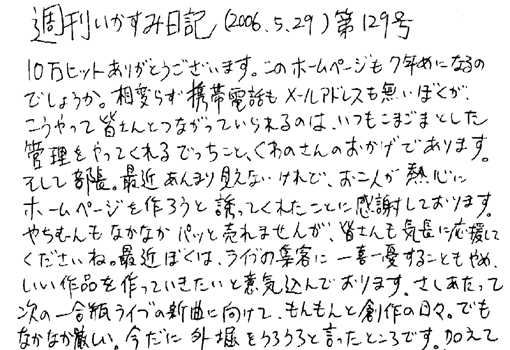 週刊いかすみ日記 (2006.5.29) 第129号
10万ヒットありがとうございます。このホームページも7年めになるの
でしょうか。相変らず携帯電話もメールアドレスも無いぼくが、
こうやって皆さんとつながっていられるのは、いつもこまごまとした
管理をやってくれるでっちこと、くわのさんのおかげであります。
そして部長。最近あんまり見えないけれど、お二人が熱心に
ホームページを作ろうと誘ってくれたことに感謝しております。
やちむんもなかなかパッと売れませんが、皆さんも気長に応援して
くださいね。最近ぼくは、ライブの集客に一喜一憂することもやめ、
いい作品を作っていきたいと意気込んでおります。さしあたって
次の一合瓶ライブの新曲に向けて、もんもんと創作の日々。でも
なかなか厳しい。今だに外堀をうろうろと言ったところです。加えて